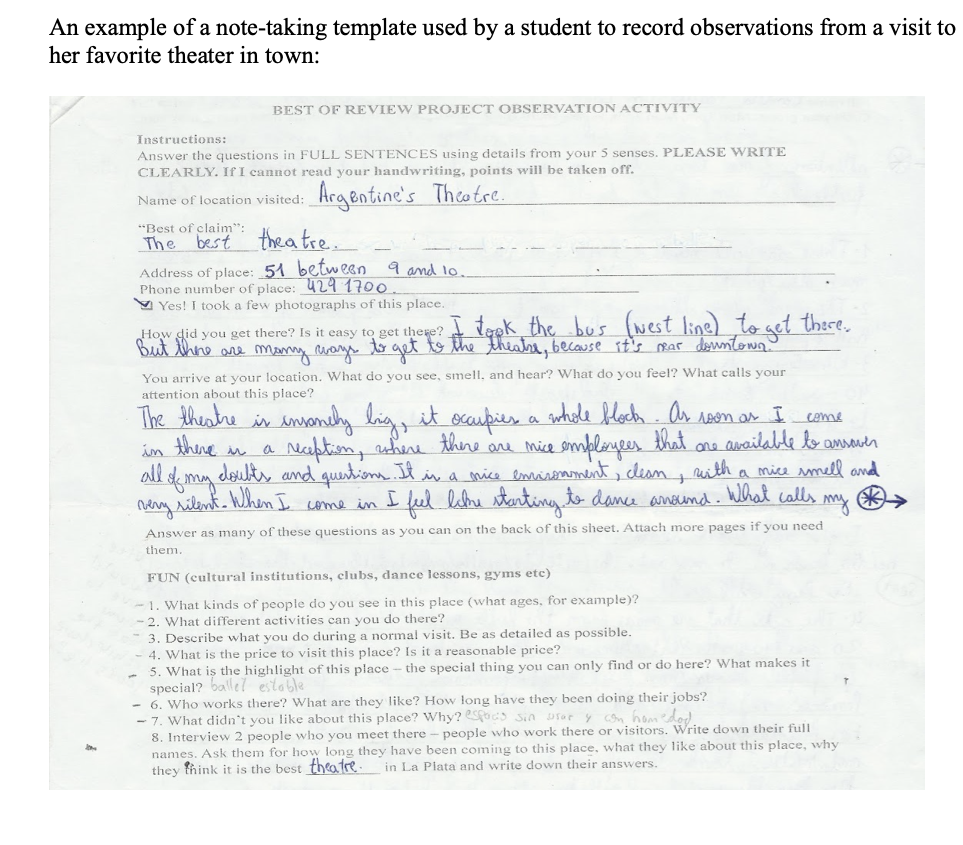 An example of a note-taking template used by a student to record observations from a visit to
her favorite theater in town:
BEST OF REVIEW PROJECT OBSERVATION ACTIVITY
Instructions:
Answer the questions in FULL SENTENCES using details from your 5 senses. PLEASE WRITE
CLEARLY. If I cannot read your handwriting, points will be taken off.
Name of location visited: Argentine's Theatre.
"Best of claim":
The best theatre.
Address of place: 51 between 9 and 10.
Phone number of place: 429 1700.
Yes! I took a few photographs of this place.
How did you get there? Is it easy to get there? I took the bus (west line) to get there.
But there are many ways to get to the theatre, because it's near downtown.
You arrive at your location. What do you see, smell, and hear? What do you feel? What calls your
attention about this place?
The theatre is insanely big, it occupies a whole block. As soon as I come
in there is a reception, where there are nice employees that are available to answer
all of my doubts and questions. It is a nice environment, clean, with a nice smell and
very silent. When I come in I feel like starting to dance around. What calls my
Answer as many of these questions as you can on the back of this sheet. Attach more pages if you need
them.
FUN (cultural institutions, clubs, dance lessons, gyms etc)
1. What kinds of people do you see in this place (what ages, for example)?
2. What different activities can you do there?
3. Describe what you do during a normal visit. Be as detailed as possible.
4. What is the price to visit this place? Is it a reasonable price?
5. What is the highlight of this place – the special thing you can only find or do here? What makes it
special? ballet estable
6. Who works there? What are they like? How long have they been doing their jobs?
7. What didn't you like about this place? Why? sin usar y con humedad
8. Interview 2 people who you meet there – people who work there or visitors. Write down their full
names. Ask them for how long they have been coming to this place, what they like about this place, why
they think it is the best theatre. in La Plata and write down their answers.